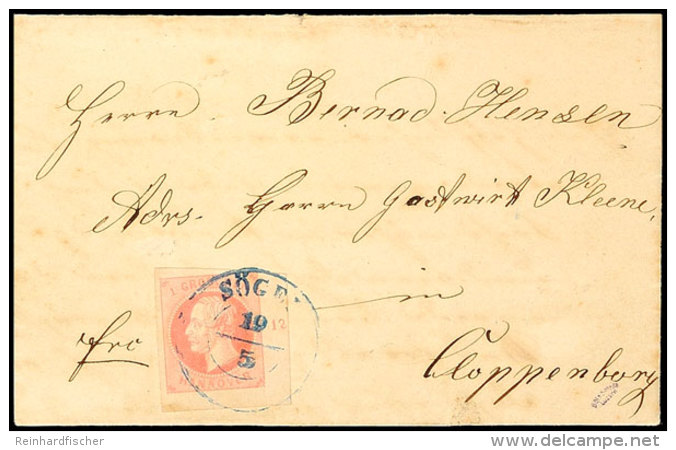 Herrn Bernad Hensen
Adrs. Herrn Gastwirt Kleene,
in
frc
Cloppenborg
1 GRO
SÖGEL
19
5
12
HANNOVER
Reinhardfischer
www.delcampe.net